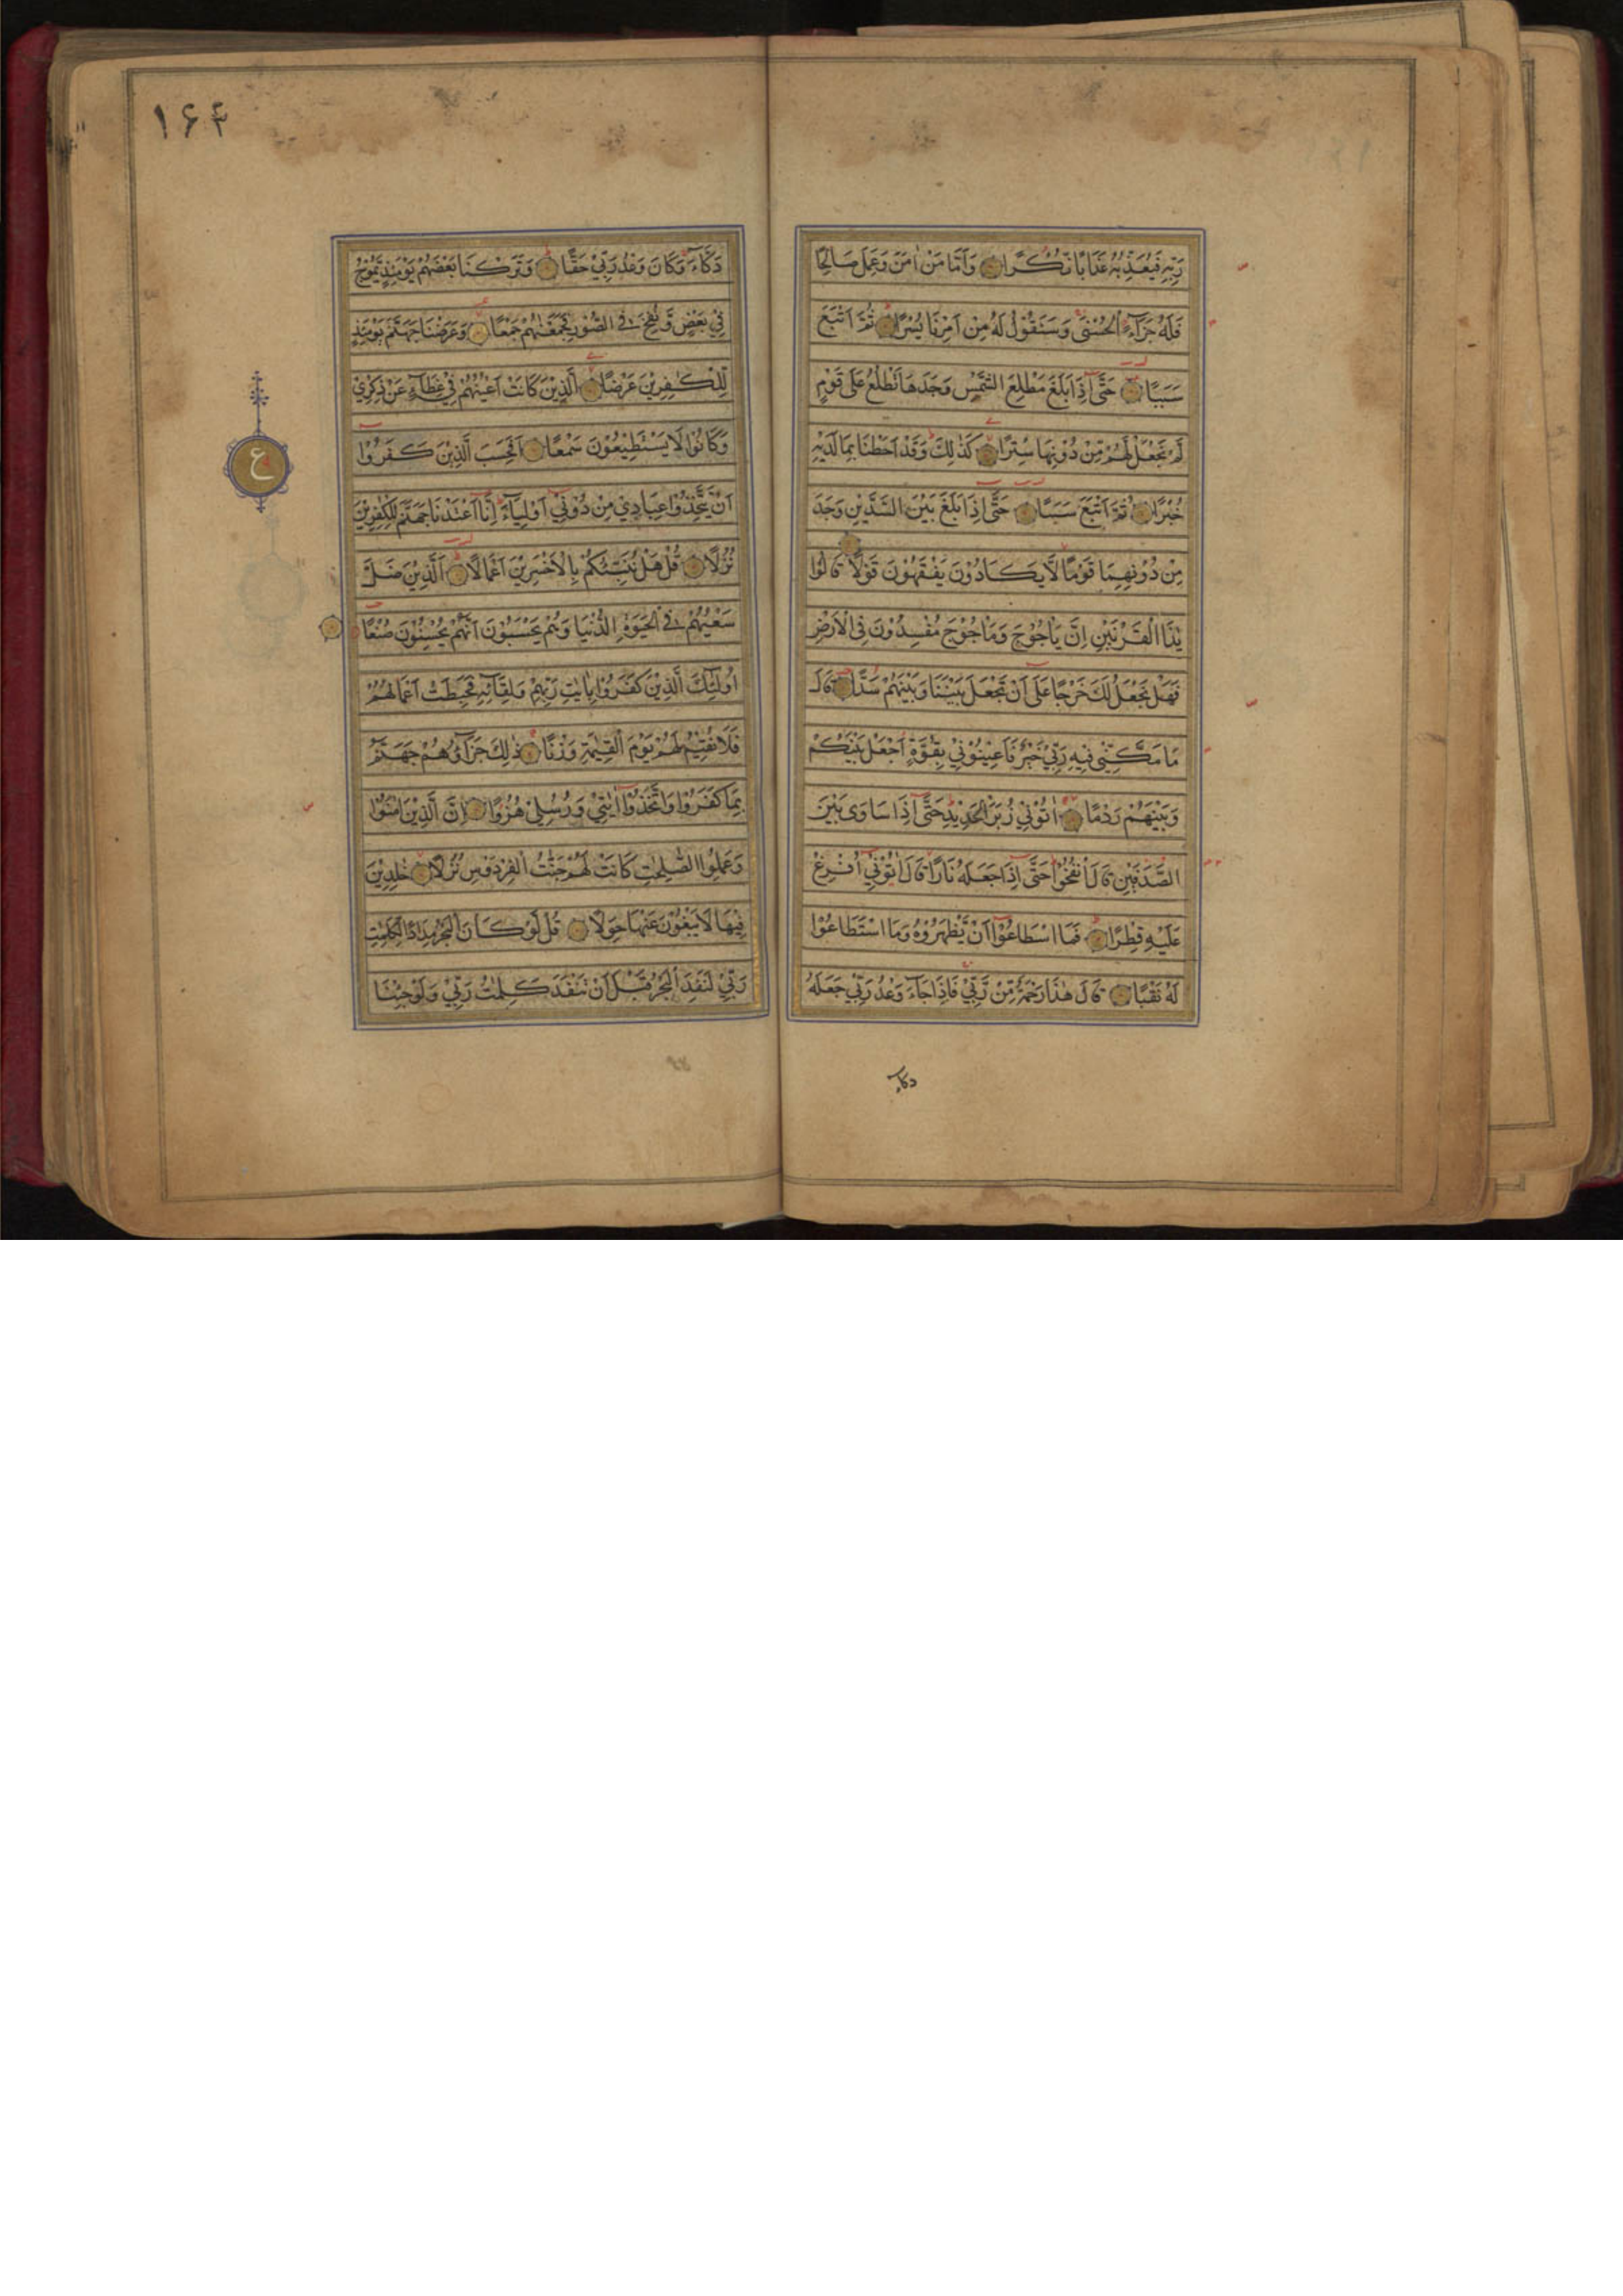 رَبِّهِ فَيُعَذِّبُهُ عَذَابًا نُّكْرًا وَاَمَّا مَنْ اٰمَنَ وَعَمِلَ صَالِحًا
فَلَهُ جَزَآءً الْحُسْنٰى وَسَنَقُوْلُ لَهُ مِنْ اَمْرِنَا يُسْرًا ثُمَّ اَتْبَعَ
سَبَبًا حَتّٰٓى اِذَا بَلَغَ مَطْلِعَ الشَّمْسِ وَجَدَهَا تَطْلُعُ عَلٰى قَوْمٍ
لَّمْ نَجْعَلْ لَّهُمْ مِّنْ دُوْنِهَا سِتْرًا كَذٰلِكَ وَقَدْ اَحَطْنَا بِمَا لَدَيْهِ
خُبْرًا ثُمَّ اَتْبَعَ سَبَبًا حَتّٰٓى اِذَا بَلَغَ بَيْنَ السَّدَّيْنِ وَجَدَ
مِنْ دُوْنِهِمَا قَوْمًا لَّا يَكَادُوْنَ يَفْقَهُوْنَ قَوْلًا قَالُوْا
يٰذَا الْقَرْنَيْنِ اِنَّ يَاْجُوْجَ وَمَاْجُوْجَ مُفْسِدُوْنَ فِى الْاَرْضِ
فَهَلْ نَجْعَلُ لَكَ خَرْجًا عَلٰٓى اَنْ تَجْعَلَ بَيْنَنَا وَبَيْنَهُمْ سَدًّا قَالَ
مَا مَكَّنِّيْ فِيْهِ رَبِّيْ خَيْرٌ فَاَعِيْنُوْنِيْ بِقُوَّةٍ اَجْعَلْ بَيْنَكُمْ
وَبَيْنَهُمْ رَدْمًا اٰتُوْنِيْ زُبَرَ الْحَدِيْدِ حَتّٰٓى اِذَا سَاوٰى بَيْنَ
الصَّدَفَيْنِ قَالَ انْفُخُوْا حَتّٰٓى اِذَا جَعَلَهُ نَارًا قَالَ اٰتُوْنِيْٓ اُفْرِغْ
عَلَيْهِ قِطْرًا فَمَا اسْطَاعُوْٓا اَنْ يَّظْهَرُوْهُ وَمَا اسْتَطَاعُوْا
لَهُ نَقْبًا قَالَ هٰذَا رَحْمَةٌ مِّنْ رَّبِّيْ فَاِذَا جَآءَ وَعْدُ رَبِّيْ جَعَلَهُ
دكاء
۱۶۴
دَكَّآءَ وَكَانَ وَعْدُ رَبِّيْ حَقًّا وَتَرَكْنَا بَعْضَهُمْ يَوْمَئِذٍ يَّمُوْجُ
فِيْ بَعْضٍ وَّنُفِخَ فِى الصُّوْرِ فَجَمَعْنٰهُمْ جَمْعًا وَعَرَضْنَا جَهَنَّمَ يَوْمَئِذٍ
لِّلْكٰفِرِيْنَ عَرْضًا الَّذِيْنَ كَانَتْ اَعْيُنُهُمْ فِيْ غِطَآءٍ عَنْ ذِكْرِيْ
وَكَانُوْا لَا يَسْتَطِيْعُوْنَ سَمْعًا اَفَحَسِبَ الَّذِيْنَ كَفَرُوْٓا
اَنْ يَّتَّخِذُوْا عِبَادِيْ مِنْ دُوْنِيْٓ اَوْلِيَآءَ اِنَّآ اَعْتَدْنَا جَهَنَّمَ لِلْكٰفِرِيْنَ
نُزُلًا قُلْ هَلْ نُنَبِّئُكُمْ بِالْاَخْسَرِيْنَ اَعْمَالًا اَلَّذِيْنَ ضَلَّ
سَعْيُهُمْ فِى الْحَيٰوةِ الدُّنْيَا وَهُمْ يَحْسَبُوْنَ اَنَّهُمْ يُحْسِنُوْنَ صُنْعًا
اُولٰٓئِكَ الَّذِيْنَ كَفَرُوْا بِاٰيٰتِ رَبِّهِمْ وَلِقَآئِهِ فَحَبِطَتْ اَعْمَالُهُمْ
فَلَا نُقِيْمُ لَهُمْ يَوْمَ الْقِيٰمَةِ وَزْنًا ذٰلِكَ جَزَآؤُهُمْ جَهَنَّمُ
بِمَا كَفَرُوْا وَاتَّخَذُوْٓا اٰيٰتِيْ وَرُسُلِيْ هُزُوًا اِنَّ الَّذِيْنَ اٰمَنُوْا
وَعَمِلُوا الصّٰلِحٰتِ كَانَتْ لَهُمْ جَنّٰتُ الْفِرْدَوْسِ نُزُلًا خٰلِدِيْنَ
فِيْهَا لَا يَبْغُوْنَ عَنْهَا حِوَلًا قُلْ لَّوْ كَانَ الْبَحْرُ مِدَادًا لِّكَلِمٰتِ
رَبِّيْ لَنَفِدَ الْبَحْرُ قَبْلَ اَنْ تَنْفَدَ كَلِمٰتُ رَبِّيْ وَلَوْ جِئْنَا
ع